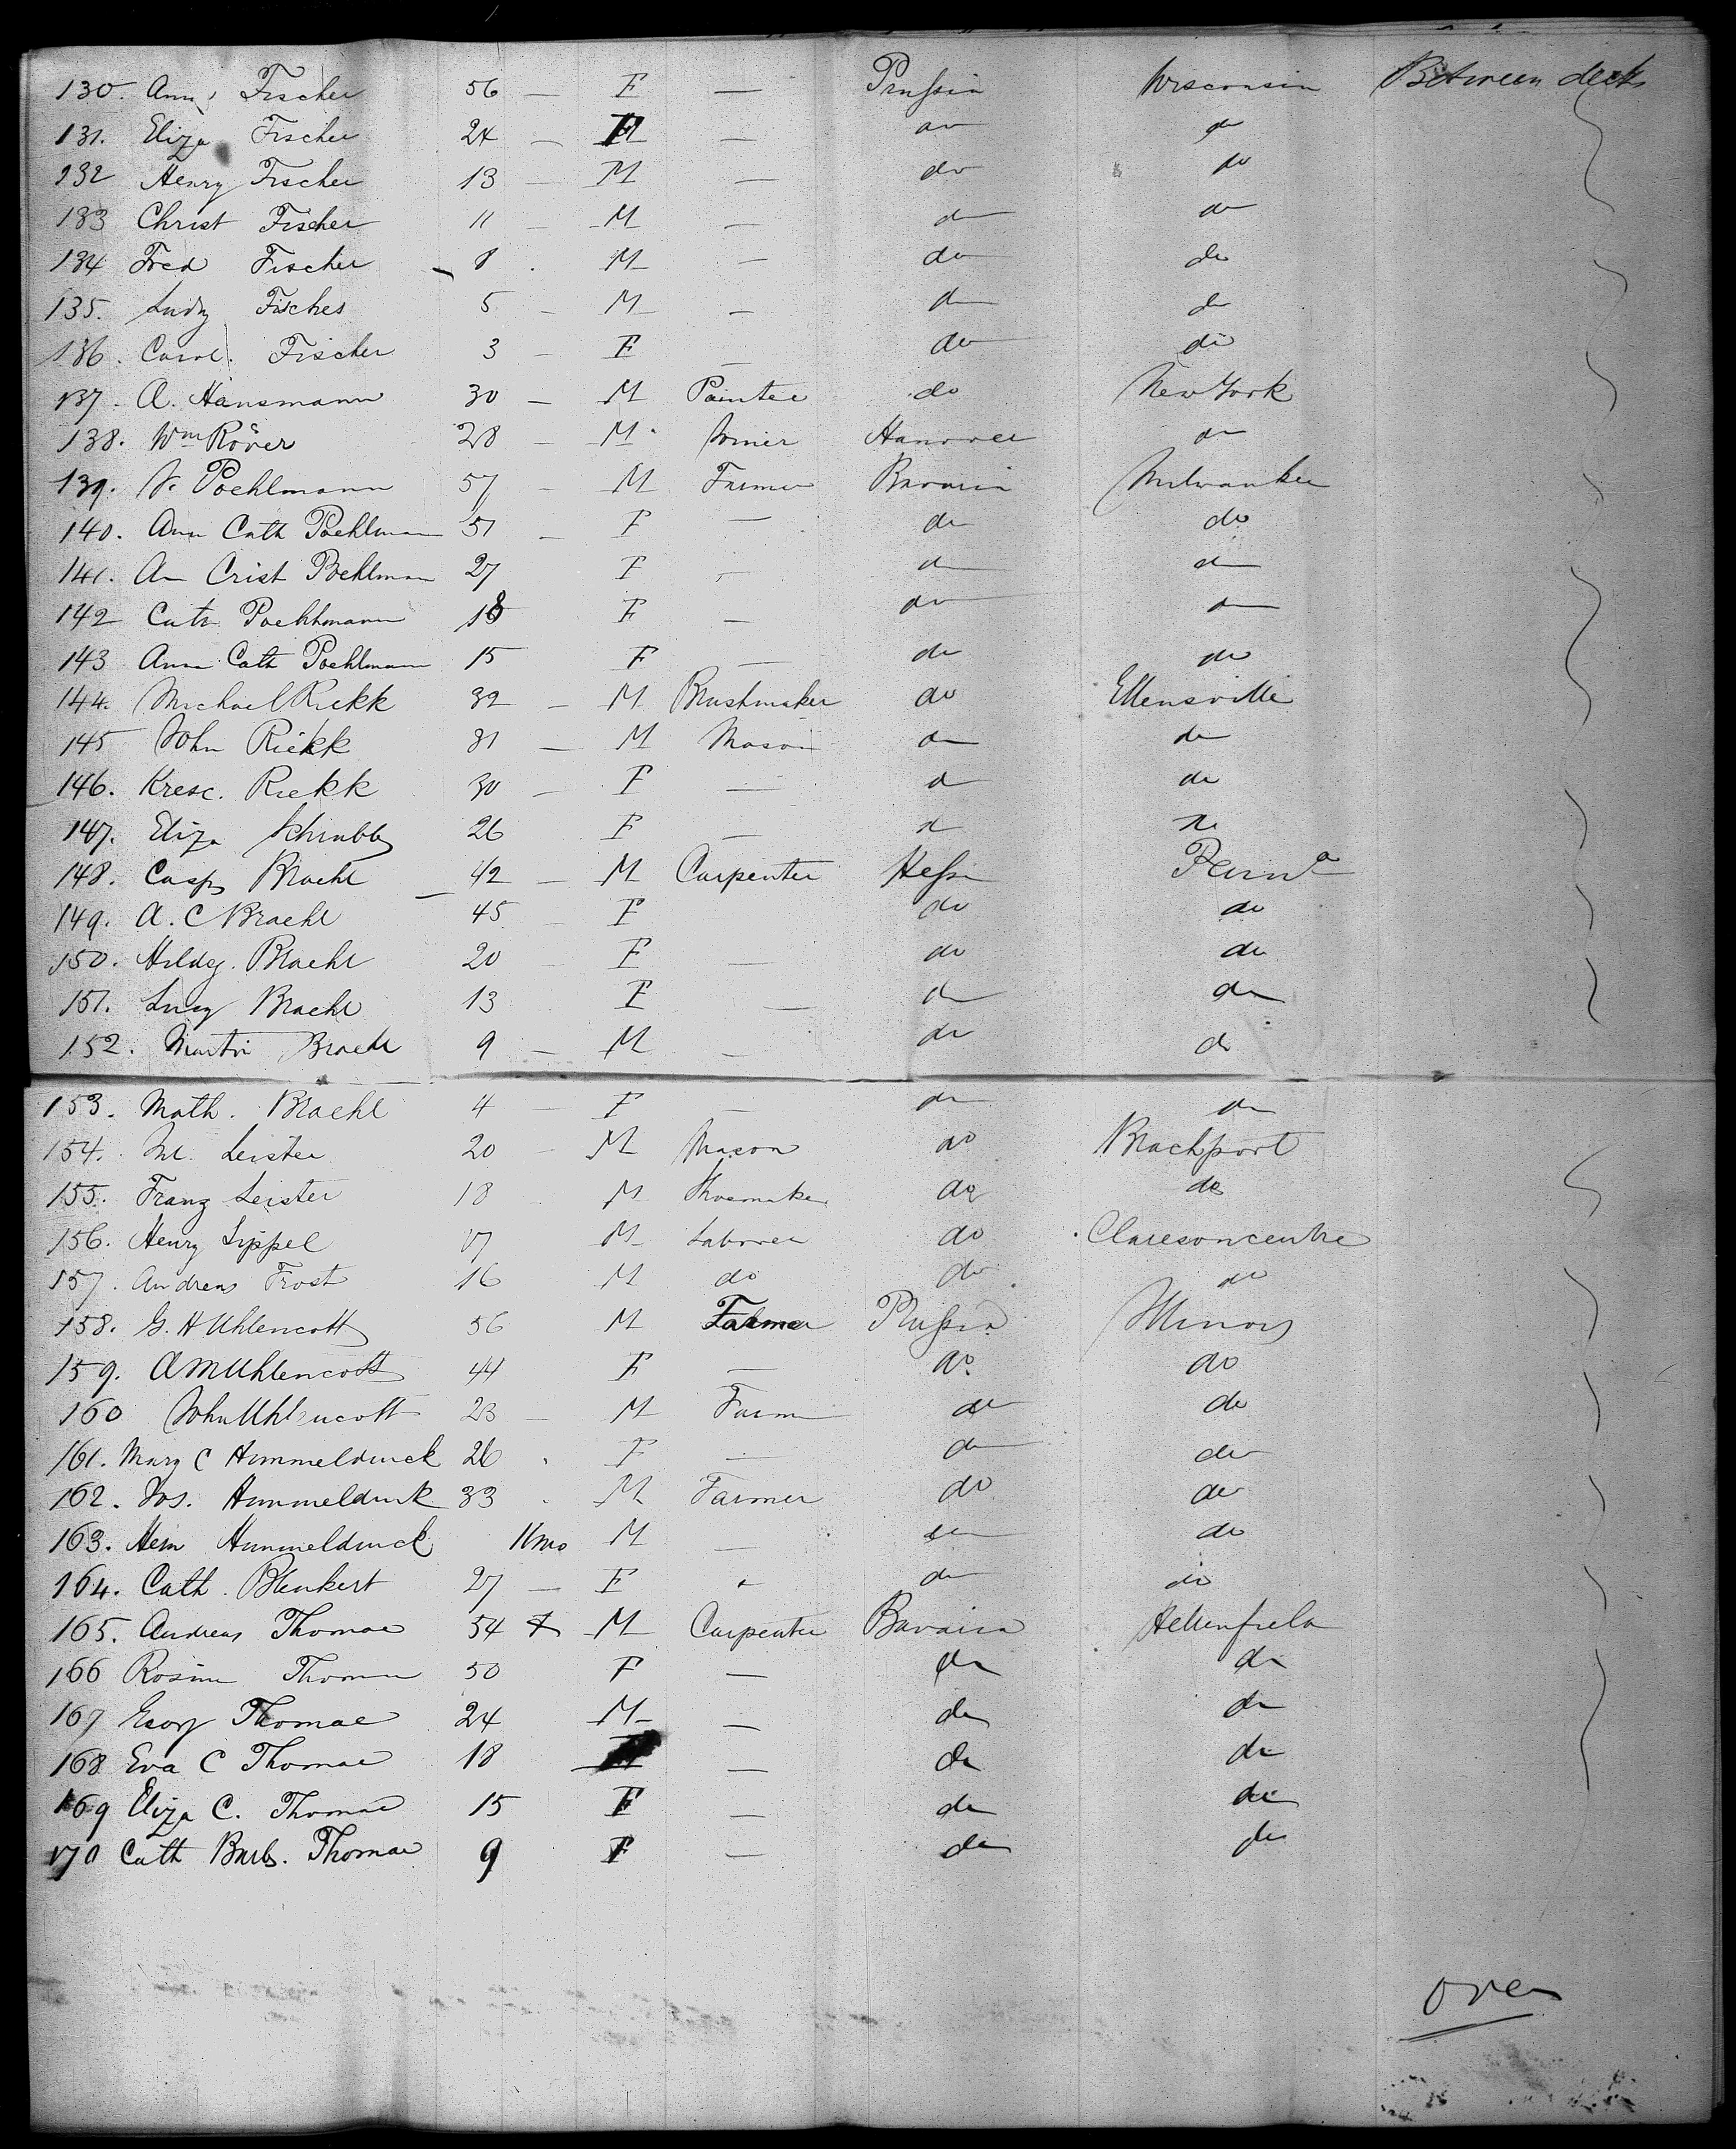 130. Ann Fischer 56 — F — Prussia Wisconsin Between decks
131. Eliza Fischer 24 — F — do do
132 Henry Fischer 13 — M — do do
133 Christ Fischer 11 — M — do do
134 Fred Fischer 8 . M — do do
135. Ludw Fisches 5 — M — do do
136. Carol. Fischer 3 — F — do do
137. A. Hansmann 30 — M Painter do New York
138. Wm Röver 28 — M Joiner Hanover do
139. J. Poehlmann 57 — M Farmer Bavaria Milwaukee
140. Ann Cath Poehlmann 51 — F — do do
141. An Crist Poehlmann 27 F — do do
142 Cath Poehlmann 18 F — do do
143 Anna Cath Poehlmann 15 F — do do
144. Michael Riekk 32 — M Brushmaker do Ellensville
145 John Riekk 31 — M Mason do do
146. Kresc. Riekk 30 — F — do do
147. Eliza 26 F — do do
148. Casp Braehl 42 — M Carpenter Hessia Penna
149. A. C Braehl 45 F do do
150. Hildeg. Braehl 20 F — do do
151. Lucy Braehl 13 F — do do
152. Martin Braehl 9 — M — do do
153. Math. Braehl 4 — F — do do
154. M. Leister 20 — M Mason do Brachport
155. Franz Leister 18 M Shoemaker do do
156. Henry Lippel 17 M Laborer do Claresoncentre
157. Andreas Frost 16 M do do do
158. G. H Uhlencott 56 M Farmer Prussia Illinois
159. A M Uhlencott 44 F — do. do
160 John Uhlencott 23 — M Farmer do do
161. Mary C Hummelduck 26 . F — do do
162. Jos. Hummelduck 33 . M Farmer do do
163. Hein Hummelduck 11 mo M — do do
164. Cath. Blenkert 27 — F do do
165. Andreas Thomae 54 M Carpenter Bavaria
166 Rosina Thomae 50 F — do do
167 Georg Thomae 24 M — do do
168 Eva C Thomae 18 — do do
169 Eliza C. Thomae 15 F — do do
170 Cath Barb. Thomae 9 F — do do
over